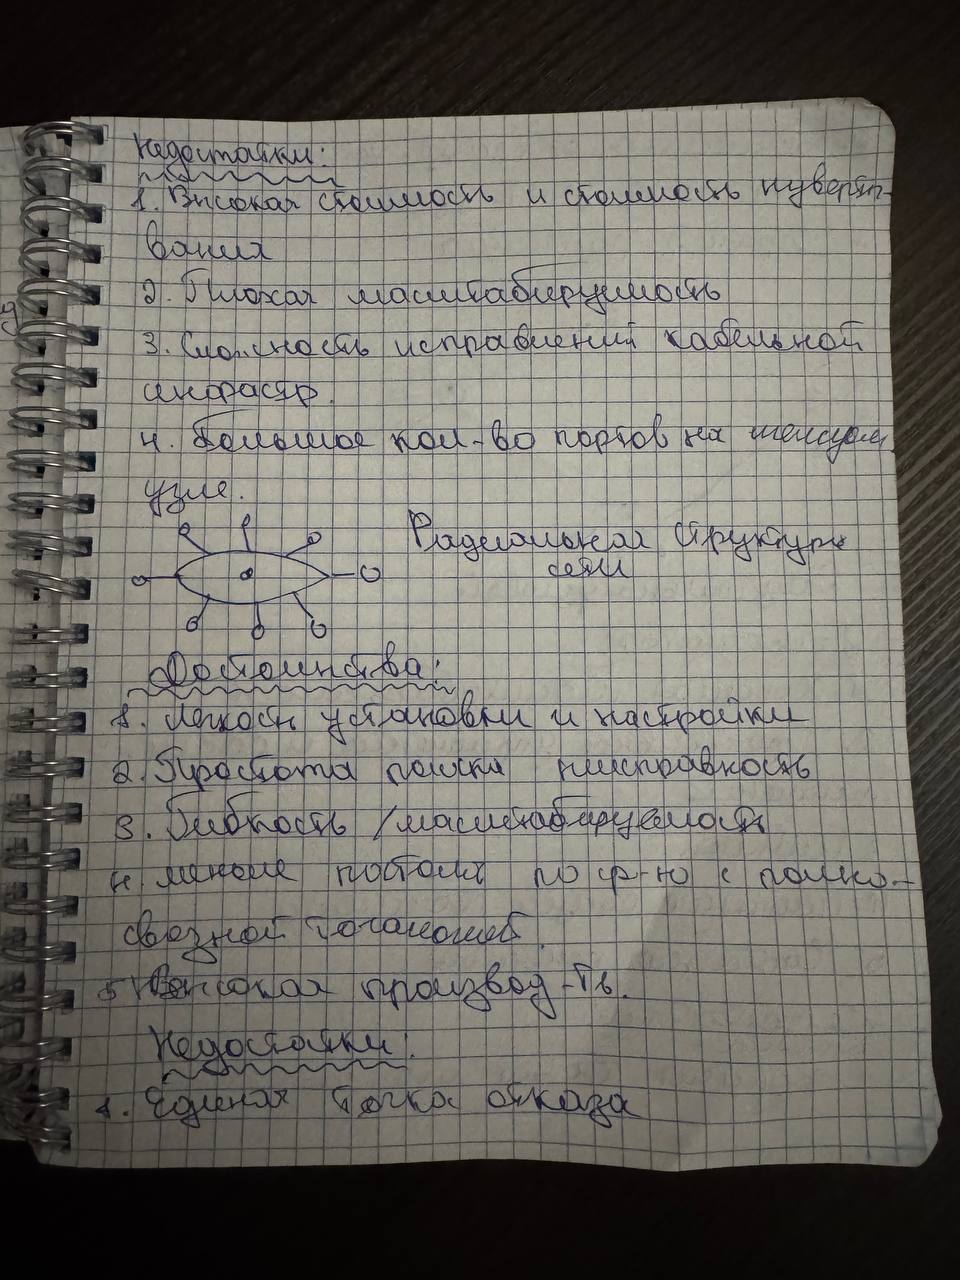 Недостатки:
1. Высокая стоимость и стоимость
вания
2. Плохая масштабируемость
3. Сложность исправлений кабельной
инфрастр.
4. Большое кол-во портов на
узле.
Радиальная структура
сети
Достоинства:
1. Легкость установки и настройки
2. Простота поиска неисправность
3. Гибкость / масштабируемость
4. меньше по ср-ю с полно-
связной топологией.
5 Высокая производ-ть.
Недостатки:
1. Единая точка отказа